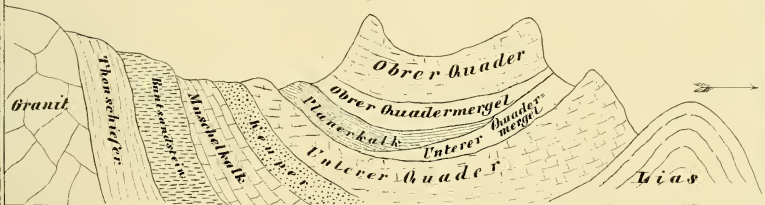 Granit
Thonschiefer
Buntsandstein
Muschelkalk
Keuper
Obrer Quader
Obrer Quadermergel
Planerkalk
Unterer Quader-
mergel
Unterer Quader
Lias